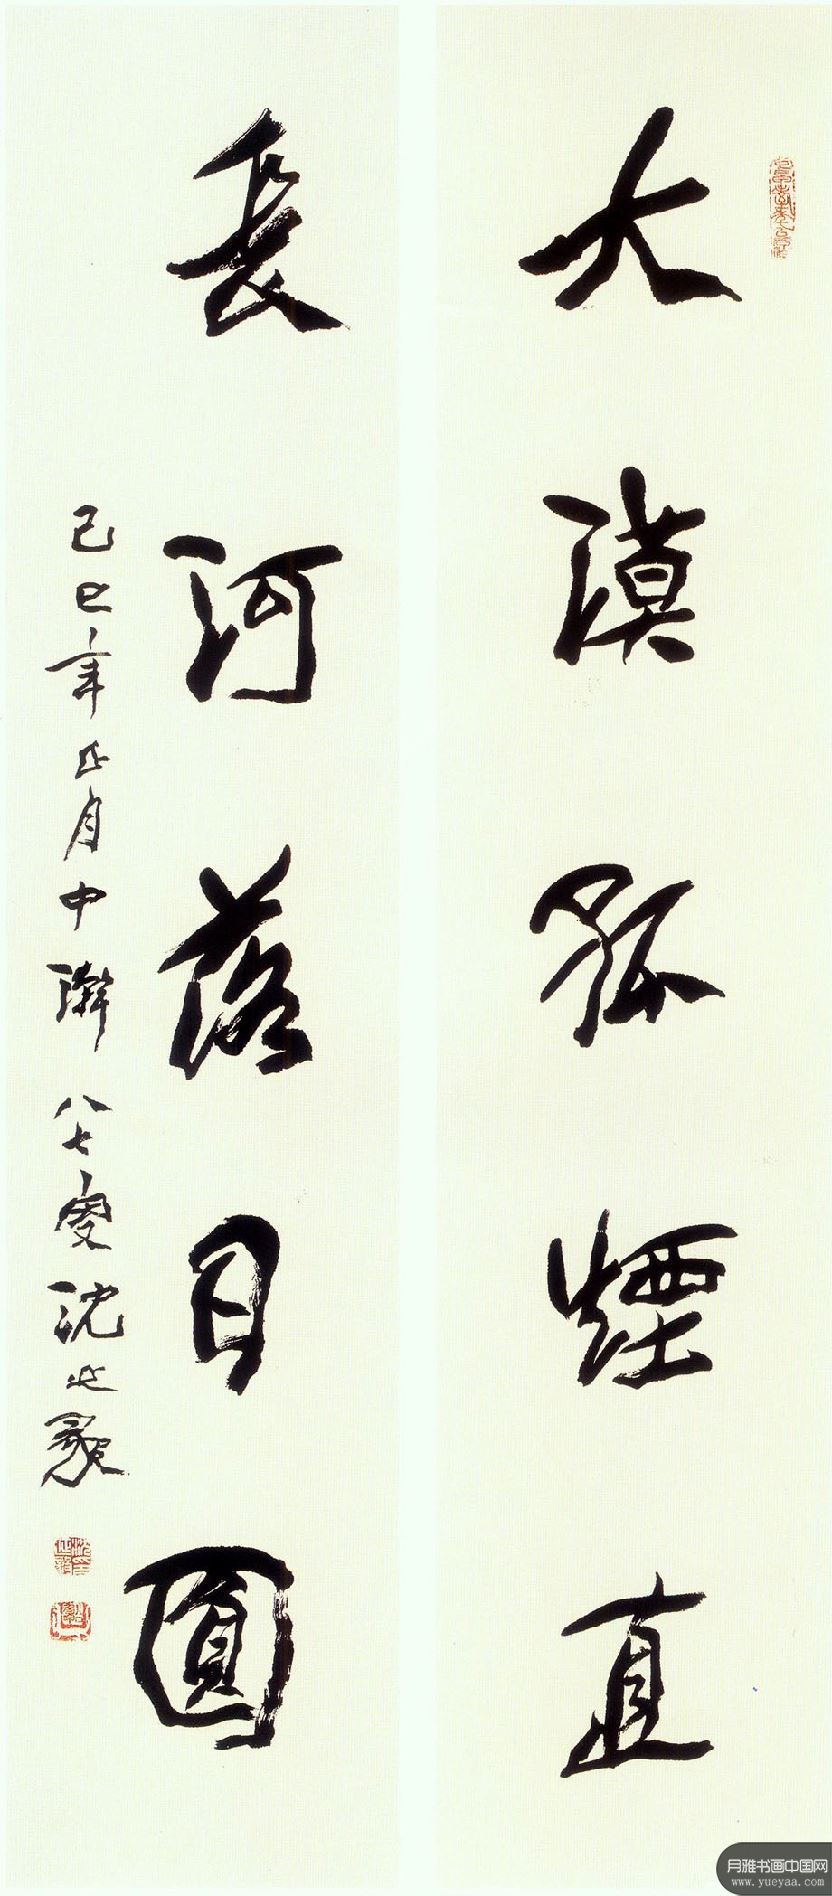 大漠孤煙直
長河落日圓
己巳年正月中澣 八七叟沈延毅
月雅书画中国网
www.yueyaa.com